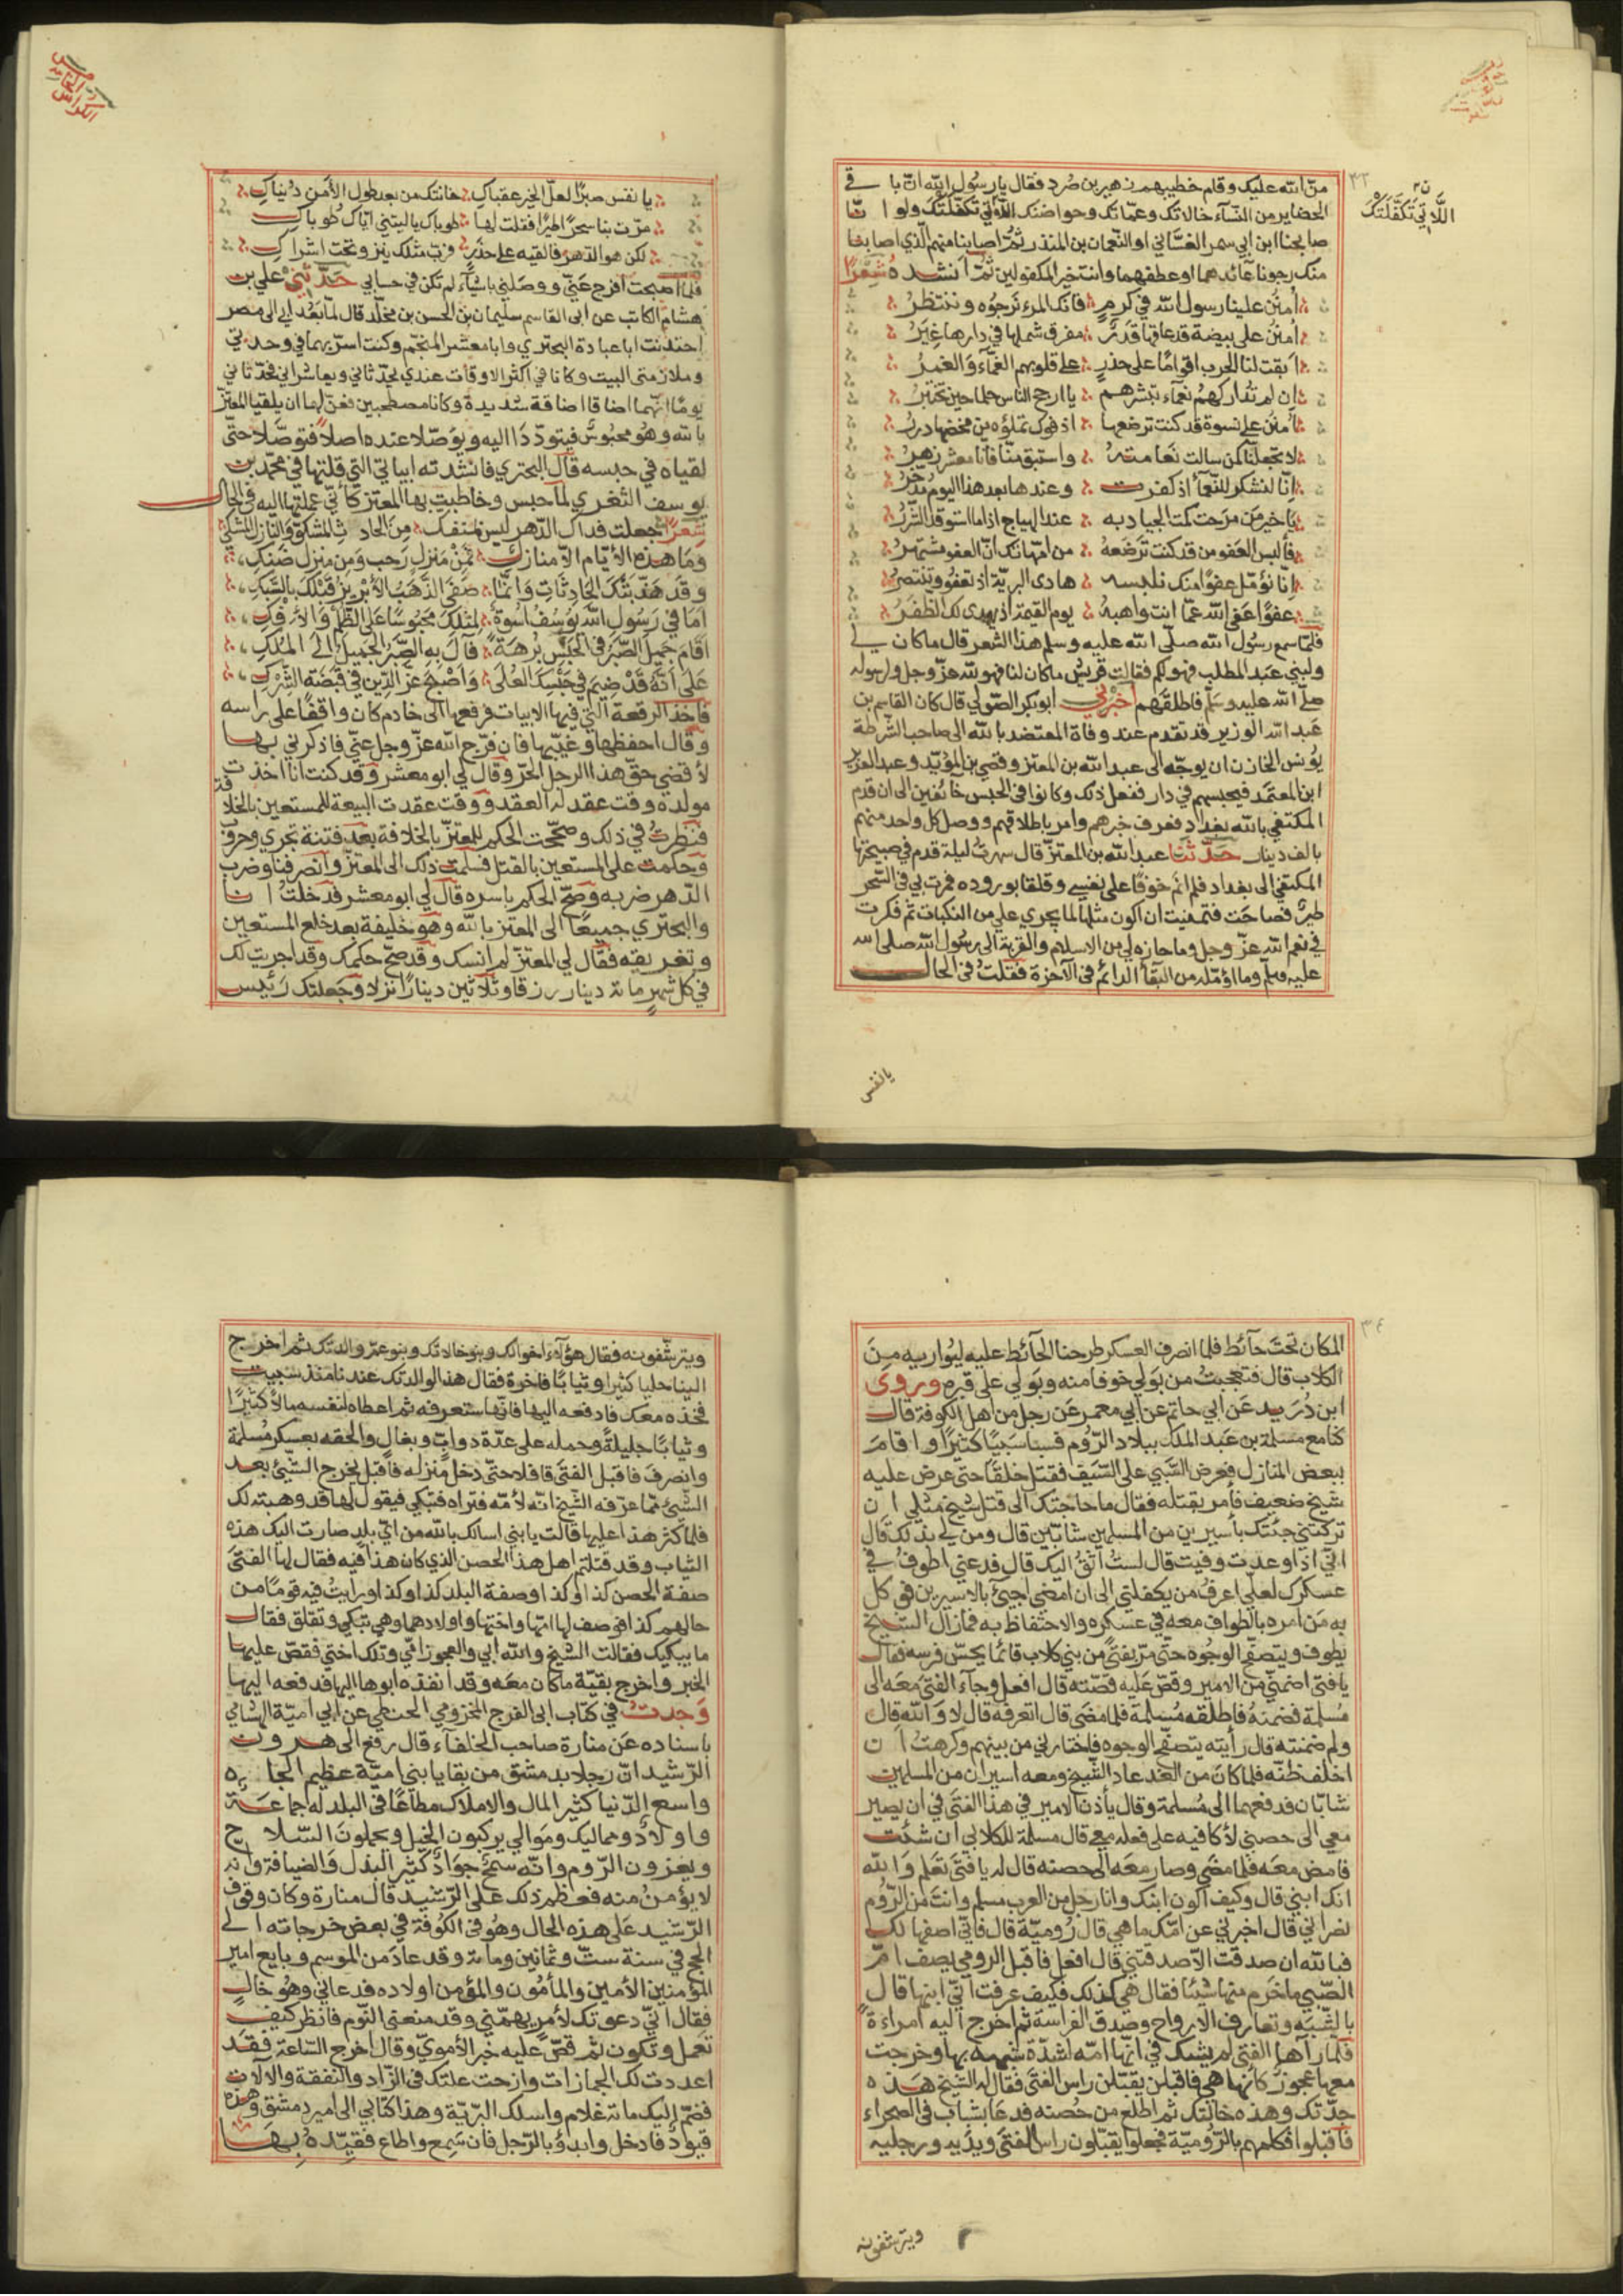 ٣٣
من الله عليك وقام خطيبهم زهير بن صرد فقال يا رسول الله ان ما في
الحضاير من النسآء خالاتك وعماتك وحواضنك اللاتي تكفلتك ولو انا
اللَّاتِي تَكَفَّلَتْكَ
صالحنا ابن ابي سمر الغسّاني او النعمان بن المنذر ثمّ اصابنا منهم الذي اصابنا
منك رجونا عآئدهما وعطفهما وانت خير المكفولين ثمّ انشده شِعْرًا
اُمنُن علينا رسول الله في كرمٍ فانك المرء نرجوه وننتظرُ
اُمنُن على بيضة قد عاقها قدرٌ مفرق شملها في دارها غِيَرُ
ابقت لنا الحرب اقوامًا على حذرٍ على قلوبهم الغمّآء والغمرُ
ان لم تداركهم نعمآء تنشرهم يا ارجح الناس حلما حين تختبرُ
اُمنُن على نسوة قد كنت ترضعها اذ فوك تملؤه من مخضها دررُ
لا تجعلنّا كمن سالت نعامته واستبق منّا فانا معشر زهرُ
انّا لنشكر للنعمآ اذ كفرت وعندها بعد هذا اليوم مدّخرُ
يا خير من مرحت كمت الجياد به عند الهياج اذا ما استوقد الشررُ
فألبس العفو من قد كنت ترضعهُ من امّهاتك انّ العفو مشتهرُ
انّا نؤمّل عفوًا منك نلبسه هادى البريّة اذ تعفو وتنتصرُ
عفوًا عفى الله عمّا انت واهبهُ يوم القيمة اذ يهدى لك الظفرُ
فلمّا سمع رسول الله صلّى الله عليه وسلم هذا الشعر قال ما كان لي
ولبني عبد المطلب فهو لكم فقالت قريش ما كان لنا فهو لله عزّ وجل ولرسوله
صلّى الله عليه وسلّم فاطلقهم اخبرني ابو بكر الصّولي قال كان القاسم بن
عبد الله الوزير قد تقدم عند وفاة المعتضد بالله الى صاحب الشرطة
يونس الخازن ان يوجّه الى عبد الله بن المعتز وقصي بن المؤيّد وعبد العزيز
ابن المعتمد فيحبسهم في دار ففعل ذلك وكانوا في الحبس خائفين الى ان قدم
المكتفي بالله بغداد فعرف خبرهم وامر باطلاقهم ووصل كل واحد منهم
بالف دينار حدّثنا عبد الله بن المعتزّ قال سهرت ليلة قدم في صبيحتها
المكتفي الى بغداد فلم انم خوفا على نفسي وقلقا بوروده فمرت بي في السحر
طيرٌ فصاحت فتمنيت ان اكون مثلها لما يجري علي من النكبات ثم فكرت
في نعم الله عزّ وجل وما حازه لي من الاسلام والقربة الى رسول الله صلى الله
عليه وسلّم وما اؤمّله من البقآ الدائم في الآخرة فقلت في الحال
يانفس
الكراس الخامس
يا نفس صبرًا لعلّ الخير عقباكِ خانتك من بعد طول الأمن دنياكِ
مرّت بنا سحرًا طيرًا فقلت لها طوباك يا ليتني ايّاك طوباكِ
لكن هو الدّهر فالقيه على حذرٍ فربّ مثلك ينزو تحت اشراكِ
فلمّا اصبحت أفرج عنّي ووصلني باشيآء لم تكن في حسابي حَدّثَني علي بن
هشام الكاتب عن ابى القاسم سليمان بن الحسن بن مخلّد قال لمّا بعد ابي الى مصر
اجتذبت ابا عبادة البحتري وابا معشر المنجّم وكنت اسرّ بهما في وحدتي
وملازمتى البيت وكانا في اكثر الاوقات عندي يحدّثاني ويعاشراني فحدّثاني
يومًا انّهما اضاقا اضاقة شديدة وكانا مصطحبين فعنّ لهما ان يلقيا المعتزّ
بالله وهُو محبوس فيتودّدا اليه ويوصّلا عنده اصلا فتوصّلا حتّى
لقياه في حبسه قال البحتري فانشدته ابياتي التي قلتها في محمّد بن
يوسف الثغري لمّا حبس وخاطبت بها المعتز كأنّي عملتها اليه في الحال
شِعْرًا جعلت فداك الدّهر ليس بمنفك من الحادث المشكوّ والنازل المشكي
وما هذه الأيّام الاّ منازل فمن منزل رحب ومن منزل ضنك
وقد هذّبتك الحادثات وانّما صفى الذّهب الأبريز قبلك بالسّبك
اما في رسول الله يوسف اسوة لمثلك محبوسًا على الظلم والافك
اقام جميل الصّبر في الحبس برهة فآل به الصّبر الجميل الى الملك
على انه قد ضيم في حبسك العلى واصبح عزّ الدّين في قبضة الشّرك
فاخذ الرقعة التي فيها الابيات فرفعها الى خادم كان واقفًا على راسه
وقال احفظها وغيّبها فان فرّج الله عزّ وجل عنّي فاذكرني بها
لأقضي حقّ هذا الرجل الحرّ وقال لي ابو معشر وقد كنت انا اخذت
مولده وقت عقد له العقد ووقت عقدت البيعة للمستعين بالخلافة
فنظرت في ذلك وصحّحت الحكم للمعتزّ بالخلافة بعد فتنة تجري وحروب
وحكمت على المستعين بالقتل فسلّمت ذلك الى المعتزّ وانصرفنا وضرب
الدّهر ضربه وصحّ الحكم باسره قال لي ابو معشر فدخلت انا
والبحتري جميعًا الى المعتز بالله وهو خليفة بعد خلع المستعين
وتغريقه فقال لي المعتزّ لم انسك وقد صحّ حكمك وقد اجريت لك
في كل شهر مائة دينار رزقا وثلاثين دينارًا نزلا وجعلتك رئيس
٣٤
المكان تحت حآئط فلمّا انصرف العسكر طرحنا الحآئط عليه ليواريه من
الكلاب قال فتعجبت من بَولي خوفا منه وبَولي على قبره وروى
ابن دُرَيد عن ابي حاتم عن ابي معمر عن رجل من اهل الكوفة قال
كنا مع مسلمة بن عبد الملك ببلاد الرّوم فسبا سبيًا كثيرًا واقام
ببعض المنازل فعرض السّبي على السّيف فقتل خلقًا حتى عرض عليه
شيخ ضعيف فأمر بقتله فقال ما حاجتك الى قتل شيخ مثلي ان
تركتني جئتك بأسيرين من المسلمين شابّين قال ومن لي بذلك قال
انّي اذا وعدت وفيت قال لستُ اثقُ اليك قال فدعني اطوفُ في
عسكرك لعلّي اعرف من يكفلني الى ان امضي اجيئ بالاسيرين فوكل
به من امره بالطواف معه في عسكره والاحتفاظ به فما زال الشيخ
يطوف ويتصفّح الوجُوه حتى مرّ بفتى من بني كلاب قائما يحسّ فرسه فقال
يا فتى اضمنّي من الامير وقصّ عليه قصّته قال افعل وجآء الفتى معه الى
مُسلمة فضمنهُ فاطلقه مُسلمة فلمّا مضى قال اتعرفه قال لا والله قال
ولم ضمنته قال رأيته يتصفّح الوجوه فاختارني من بينهم وكرهت ان
اخلف ظنّه فلمّا كان من الغد عاد الشّيخ ومعه اسيران من المسلمين
شابّان فدفعهما الى مُسلمة وقال يأذن الامير في هذا الفتى في ان يصير
معي الى حصني لأكافيه على فعله بي قال مسلمة للكلابي ان شئت
فامض معه فلمّا مضى وصار معه الى حصنه قال له يا فتى تعلم والله
انّك ابني قال وكيف اكون ابنك وانا رجل من العرب مسلم وانت من الرّوم
نصراني قال اخبرني عن امّك ما هي قال رُوميّة قال فانّي اصفها لك
فبالله ان صدقت الاّ صدقتني قال افعل فاقبل الرومي يصف امّ
الصّبي ما خرم منها شيئا فقال هي كذلك فكيف عرفت انّي ابنها قال
بالشّبه وتعارف الارواح وصدق الفراسة ثم اخرج اليه امراءة
فلمّا رآها الفتى لم يشك في انّها امّه لشدّة شبهه بها وخرجت
معها عجوز كأنها هي فاقبلن يقبّلن راس الفتى فقال له الشيخ هذه
جدّتك وهذه خالتك ثم اطلع من حُصنه فدعا بشباب في الصحراء
فاقبلوا فكلمهم بالرّوميّة فجعلوا يقبّلون راس الفتى ويديه ورجليه
ويترشفونه
ويترشّفونه فقال هؤلآء اخوالك وبنو خالاتك وبنو عمّ والدتك ثم اخرج
الينا حليا كثيرا وثيابًا فاخرة فقال هذا لوالدتك عندنا منذ سبيت
فخذه معك فادفعه اليها فانّها ستعرفه ثم اعطاه لنفسه مالاً كثيرًا
وثيابًا جليلةً وحمله على عدّة دواب وبغال والحقه بعسكر مُسلمة
وانصرف فاقبل الفتى قافلا حتّى دخل منزله فاقبل يخرج الشّيئ بعد
الشّيئ ممّا عرّفه الشّيخ انّه لأمّه فتراه فتبكي فيقول لها قد وهبته لك
فلمّا كثر هذا عليها قالت يا بني اسالك بالله من ايّ بلد صارت اليك هذه
الثياب وقد قتلتم اهل هذا الحصن الذي كان هذا فيه فقال لها الفتى
صفة الحصن كذا وكذا وصفة البلد كذا وكذا ورايتُ فيه قومًا من
حالهم كذا فوصف لها امّها واختها واولادهما وهي تبكي وتقلق فقال
ما يبكيك فقالت الشيخ والله ابي والعجوز امّي وتلك اختي فقصّ عليها
الخبر واخرج بقيّة ما كان معه وقد انفذه ابوها اليها فدفعه اليها
وَجدتُ في كتاب ابى الفرج المخزومي الحنطبي عن ابي اميّة الهشامي
باسناده عن منارة صاحب الخلفآء قال رفع الى هرون
الرّشيد انّ رجلا بدمشق من بقايا بني اميّة عظيم الجاه
واسع الدّنيا كثير المال والاملاك مطاعًا في البلد له جماعة
واولادٌ ومماليك وموالي يركبون الخيل ويحملون السّلاح
ويغزون الرّوم وانّه سمحٌ جوادٌ كثير البذل والضيافة وانه
لا يؤمن منه فعظم ذلك على الرّشيد قال منارة وكان وقوف
الرّشيد على هذه الحال وهُو في الكوفة في بعض خرجاته الى
الحج في سنة ستّ وثمانين ومائة وقد عاد من الموسم وبايع امير
المؤمنين الأمين والمأمُون والمؤمن اولاده فدعاني وهُو خالٍ
فقال انّي دعوتك لأمر يهمّني وقد منعني النّوم فانظر كيف
تعمل وتكون ثمّ قصّ عليه خبر الأمويّ وقال اخرج السّاعة فقد
اعددت لك الجمازات وازحت علتك في الزّاد والنفقة والآلات
فضمّ اليك مائة غلام واسلك البرّيّة وهذا كتابي الى امير دمشق وهذه
قيودٌ فادخل وابدؤ بالرّجل فان سَمِع واطاع فقيّدهُ بها